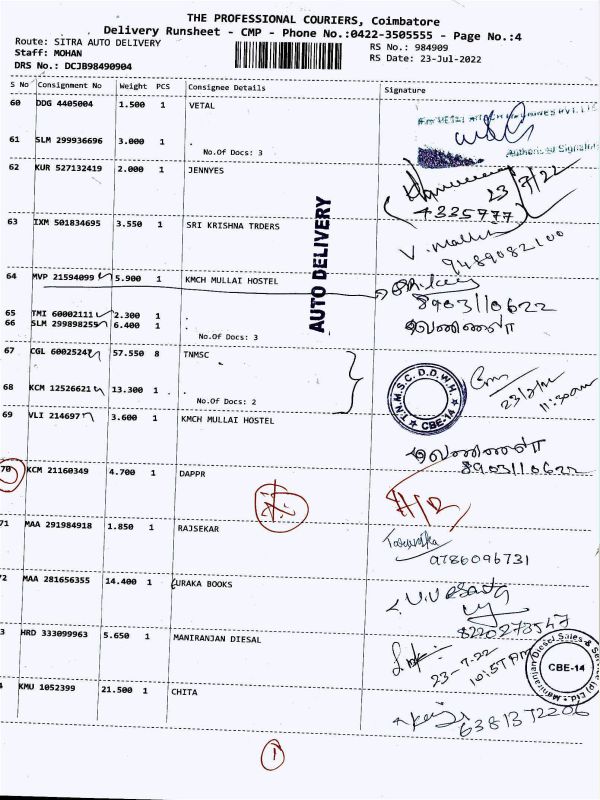 THE PROFESSIONAL COURIERS, Coimbatore
Delivery Runsheet - CMP - Phone No.:0422-3505555 - Page No.:4
Route: SITRA AUTO DELIVERY
RS No.: 984909
Staff: MOHAN
RS Date: 23-Jul-2022
DRS No.: DCJB98490904
S No Consignment No Weight PCS Consignee Details Signature
60 DDG 4405004 1.500 1 VETAL
61 SLM 299936696 3.000 1 .
No.Of Docs: 3
Authorised
62 KUR 527132419 2.000 1 JENNYES
23/7/22
63 IXM 501834695 3.550 1 SRI KRISHNA TRDERS
9489082100
AUTO DELIVERY
64 MVP 21594099 5.900 1 KMCH MULLAI HOSTEL
8903110622
65 TMI 60002111 2.300 1 .
66 SLM 299898255 6.400 1 .
No.Of Docs: 3
67 CGL 60025247 57.550 8 TNMSC
T.N.M.S.C. D.D.W.H. CBE-14
11:30am
68 KCM 12526621 13.300 1 .
No.Of Docs: 2
69 VLI 214697 3.600 1 KMCH MULLAI HOSTEL
8903110622
70 KCM 21160349 4.700 1 DAPPR
71 MAA 291984918 1.850 1 RAJSEKAR
9786096731
2 MAA 281656355 14.400 1 URAKA BOOKS
8220273547
3 HRD 333099963 5.650 1 MANIRANJAN DIESAL
23-7-22
10:57 PM
Maniranjan Diesel Sales & Service (P) Ltd. CBE-14
KMU 1052399 21.500 1 CHITA
6381372206
1